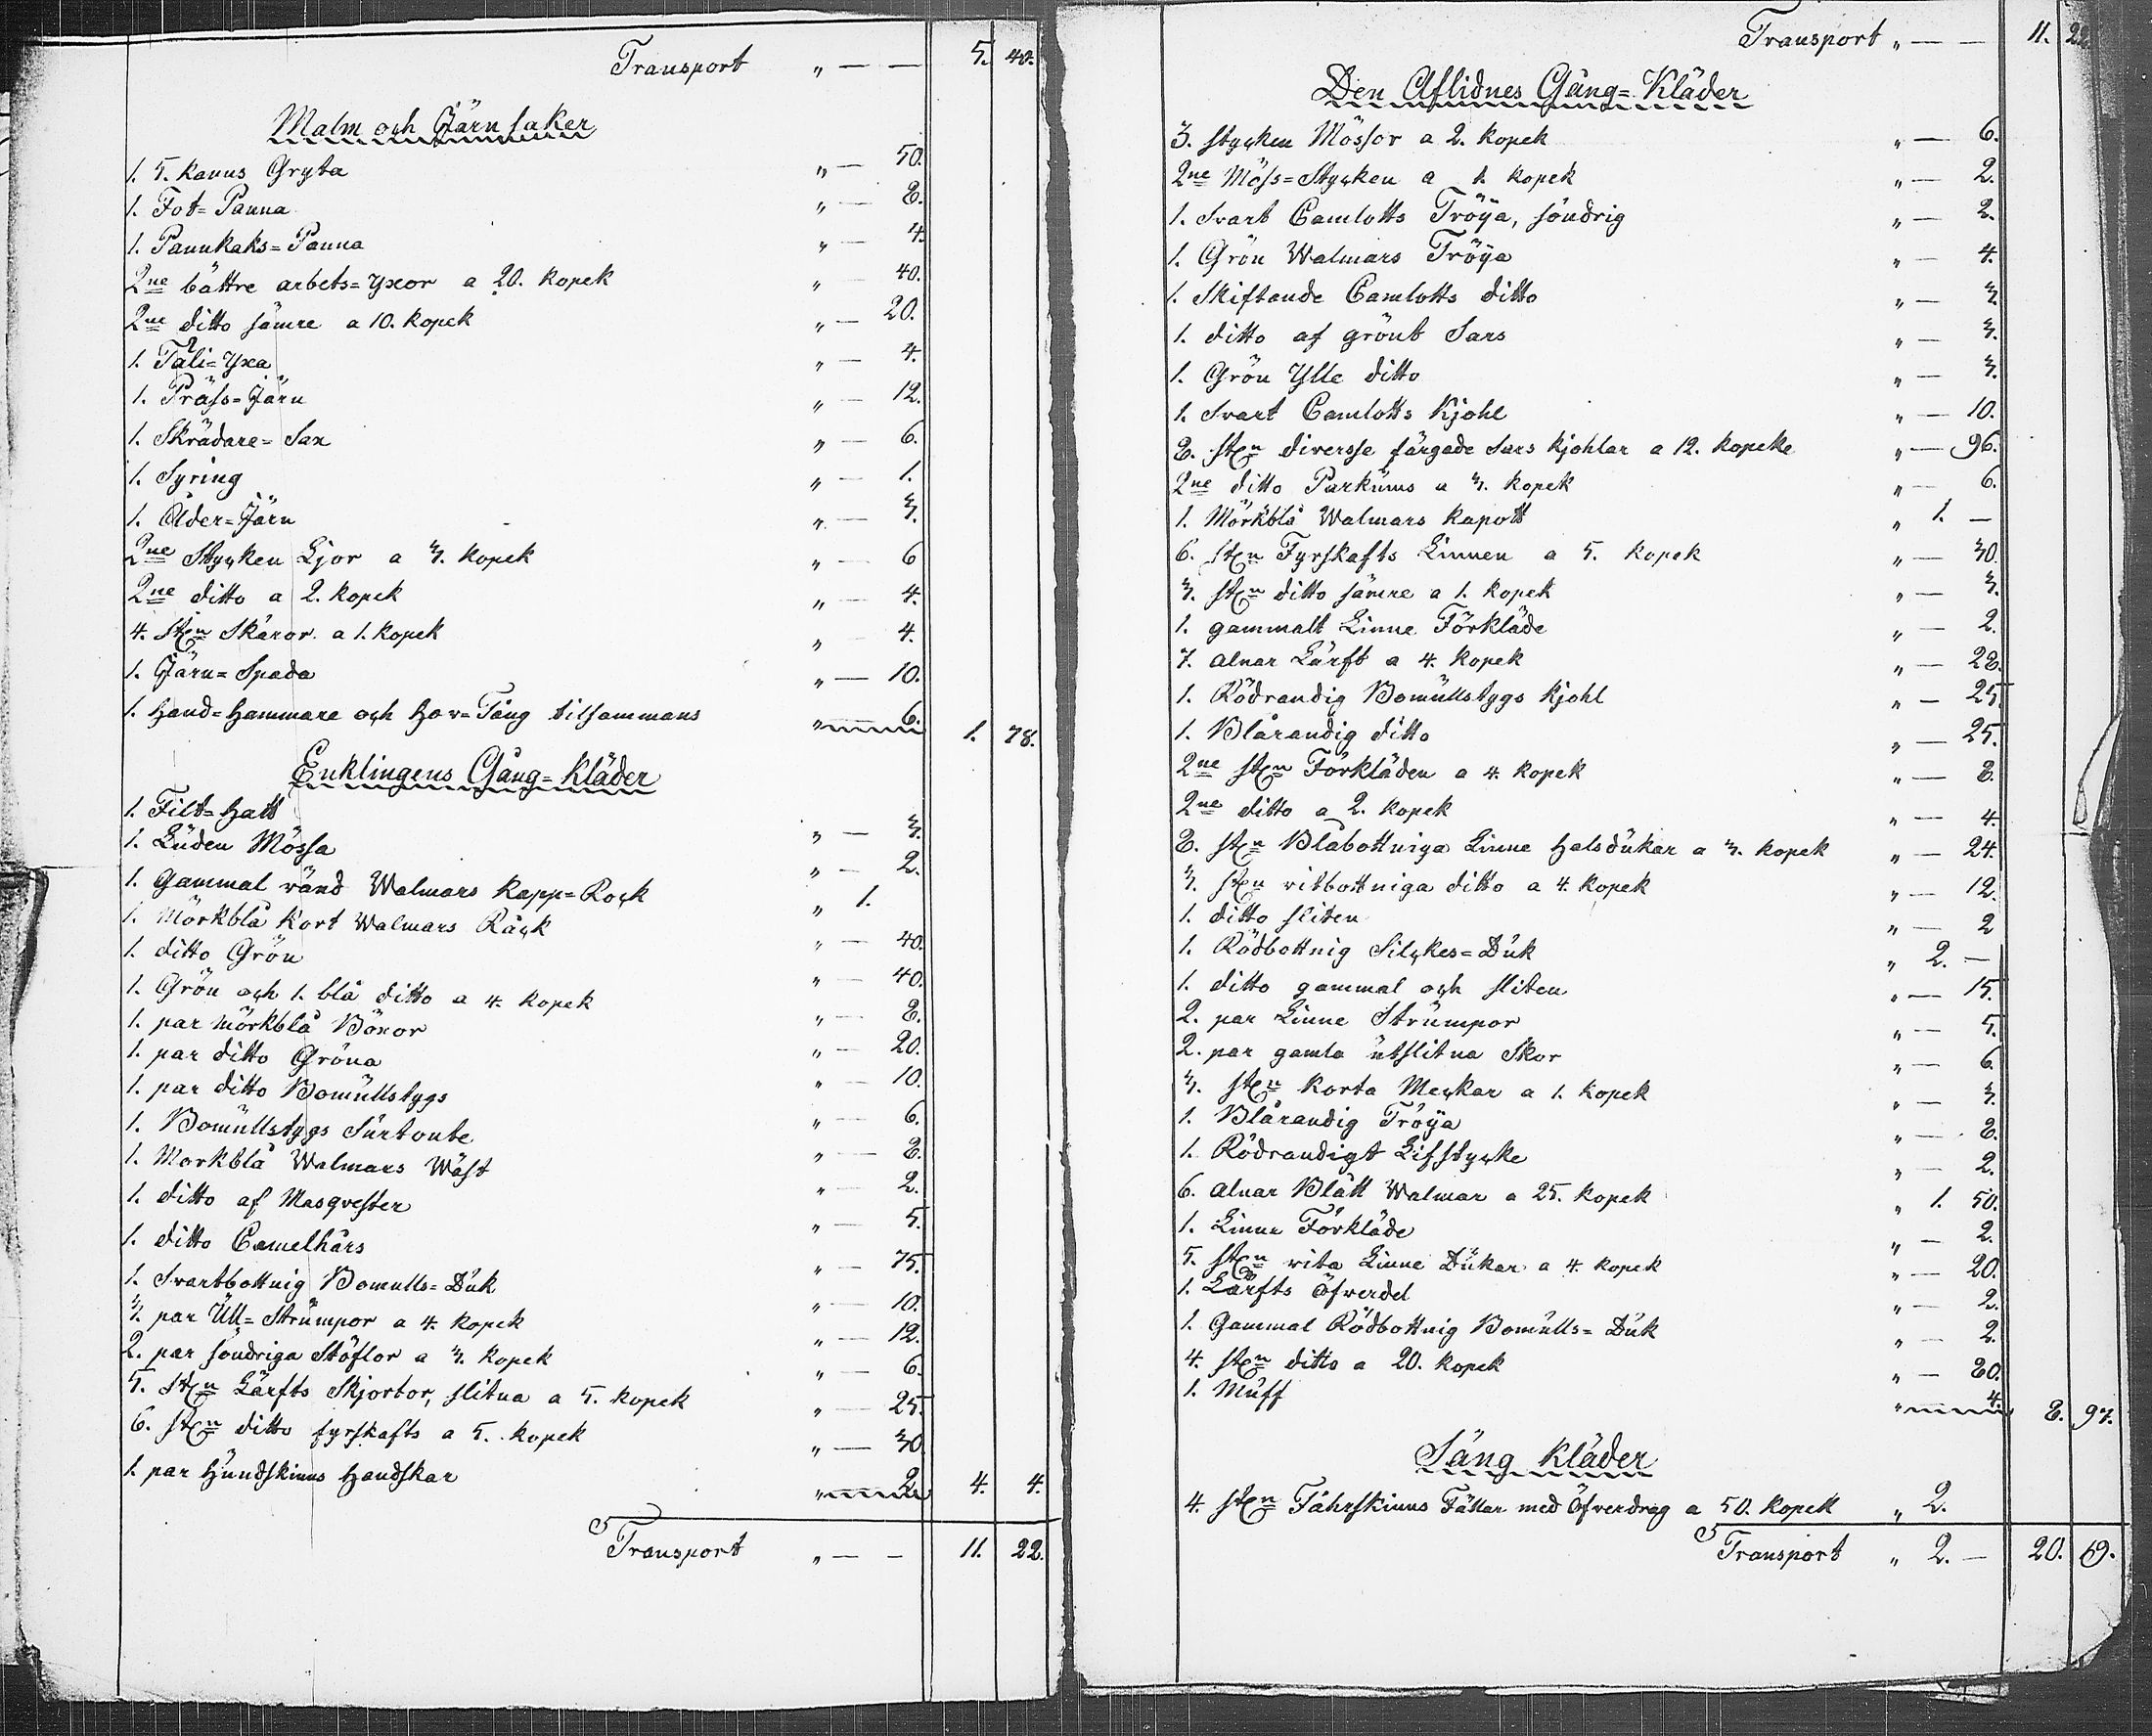 Transport " — — 5. 40.
Malm och Järnsaker
1. 5. kanns Gryta " — 50.
1. Fot=Panna " — 8.
1. Pannkaks=Panna " — 4.
2ne bättre arbets=yxor a 20. kopek " — 40.
2ne ditto sämre a 10. kopek " — 20.
1. Täli=yxa " — 4.
1. Präss=Järn " — 12.
1. Skrädare=Sax " — 6.
1. Syring " — 1.
1. Ålder=Järn " — 3.
2ne Stycken Ljor a 3. kopek " — 6
2ne ditto a 2. kopek " — 4.
4. stn Skäror a 1. kopek " — 4.
1. Järn=Spada " — 10.
1. Hand=Hammare och Hov=Tång tilsammans " — 6. 1. 78.
Enklingens Gång=Kläder
1. Filt=Hatt " — 3.
1. Luden Mössa " — 2.
1. Gammal vänd Walmars Kapp=Rock " 1.
1. Mörkblå kort Walmars Råck " — 40.
1. ditto Grön " — 40.
1. Grön och 1. blå ditto a 4. kopek " — 8.
1. par mörkblå Böxor " — 20.
1. par ditto Gröna " — 10.
1. par ditto Bomullstygs " — 6.
1. Bomullstygs Surtoute " — 8.
1. Morkblå Walmars Wäst " — 2.
1. ditto af Masqvester " — 5.
1. ditto Camelhårs " — 75.
1. Svartbottnig Bomulls=Duk " — 10.
3. par Ull=Strumpor a 4. kopek " — 12.
2. par söndriga Stöflor a 3. kopek " — 6.
5. stn Lärfts Skjortor, slitna a 5. kopek " — 25.
6. stn ditto fyrskafts a 5. kopek " — 30.
1. par Hundskinns Handskar " — 2. 4. 4.
Transport " — — 11. 22.
Transport " — — 11. 22.
Den Aflidnes Gång=Kläder
3. stycken Mössor a 2. kopek " — 6.
2ne Möss=Stycken a 1. kopek " — 2.
1. Svart Camlotts Tröya, söndrig " — 2.
1. Grön Walmars Tröya " — 4.
1. Skiftande Camlotts ditto " — 3.
1. ditto af grönt Sars " — 3.
1. Grön Ylle ditto " — 3.
1. Svart Camlotts Kjohl " — 10.
8. stn diversse färgade Sars kjohlar a 12. kopeke " — 96.
2ne ditto Parkums a 3. kopek " — 6.
1. Mörkblå Walmars Kapott " 1. —
6. stn Fyrskafts Linnen a 5. kopek " — 30.
3. stn ditto sämre a 1. kopek " — 3.
1. gammalt Linne Förkläde " — 2.
7. alnar Lärft a 4. kopek " — 28.
1. Rödrandig Bomullstygs kjohl " — 25.
1. Blårandig ditto " — 25.
2ne stn Förkläden a 4. kopek " — 8.
2ne ditto a 2. kopek " — 4.
8. stn Blåbottniga Linne Halsdukar a 3. kopek " — 24.
3. stn vitbottniga ditto a 4. kopek " — 12.
1. ditto sliten " — 2
1. Rödbottnig Silckes=Duk " 2. —
1. ditto gammal och sliten " — 15.
2. par Linne Strumpor " — 5.
2. par gamla utslitna Skor " — 6.
3. stn korta Meckar a 1. kopek " — 3.
1. Blårandig Tröya " — 8.
1. Rödrandigt Lifstycke " — 2.
6. alnar Blått Walmar a 25. kopek " 1. 50.
1. Linne Förkläde " — 2.
5. stn vita Linne Dukar a 4. kopek " — 20.
1. Lärfts Öfverdel " — 2.
1. Gammal Rödbottnig Bomulls=Duk " — 2.
4. stn ditto a 20. kopek " — 80.
1. Muff " — 4. 8. 97.
Säng kläder
4. stn Fåhrskinns Fällar med Öfverdrag a 50. kopek " 2.
Transport " 2. — 20. 19.